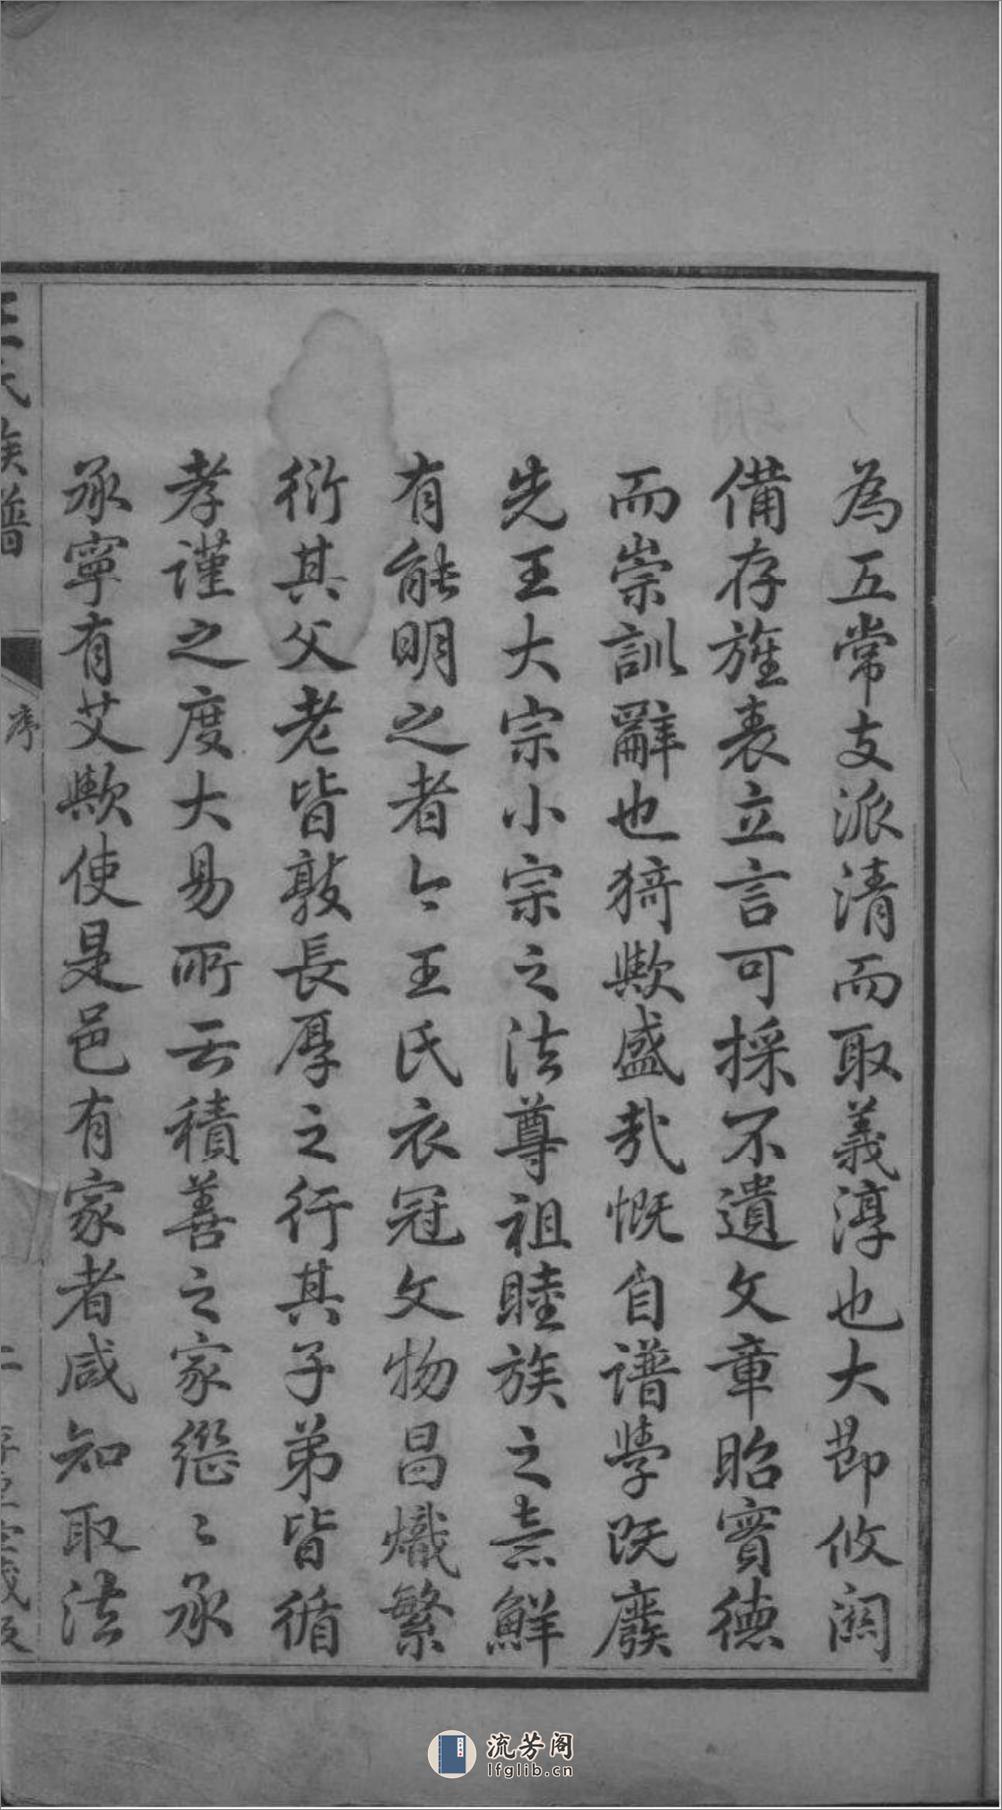 為五常支派清而取義淳也大節攸関
備存旌表立言可採不遺文章昭實德
而崇訓辭也猗歟盛哉慨自譜學既廢
先王大宗小宗之法尊祖睦族之意鮮
有能明之者今王氏衣冠文物昌熾繁
衍其父老皆敦長厚之行其子弟皆循
孝謹之度大易所云積善之家綿〻承
承寧有艾歟使是邑有家者咸知取法
王氏族譜
序
二
流芳阁
lfglib.cn